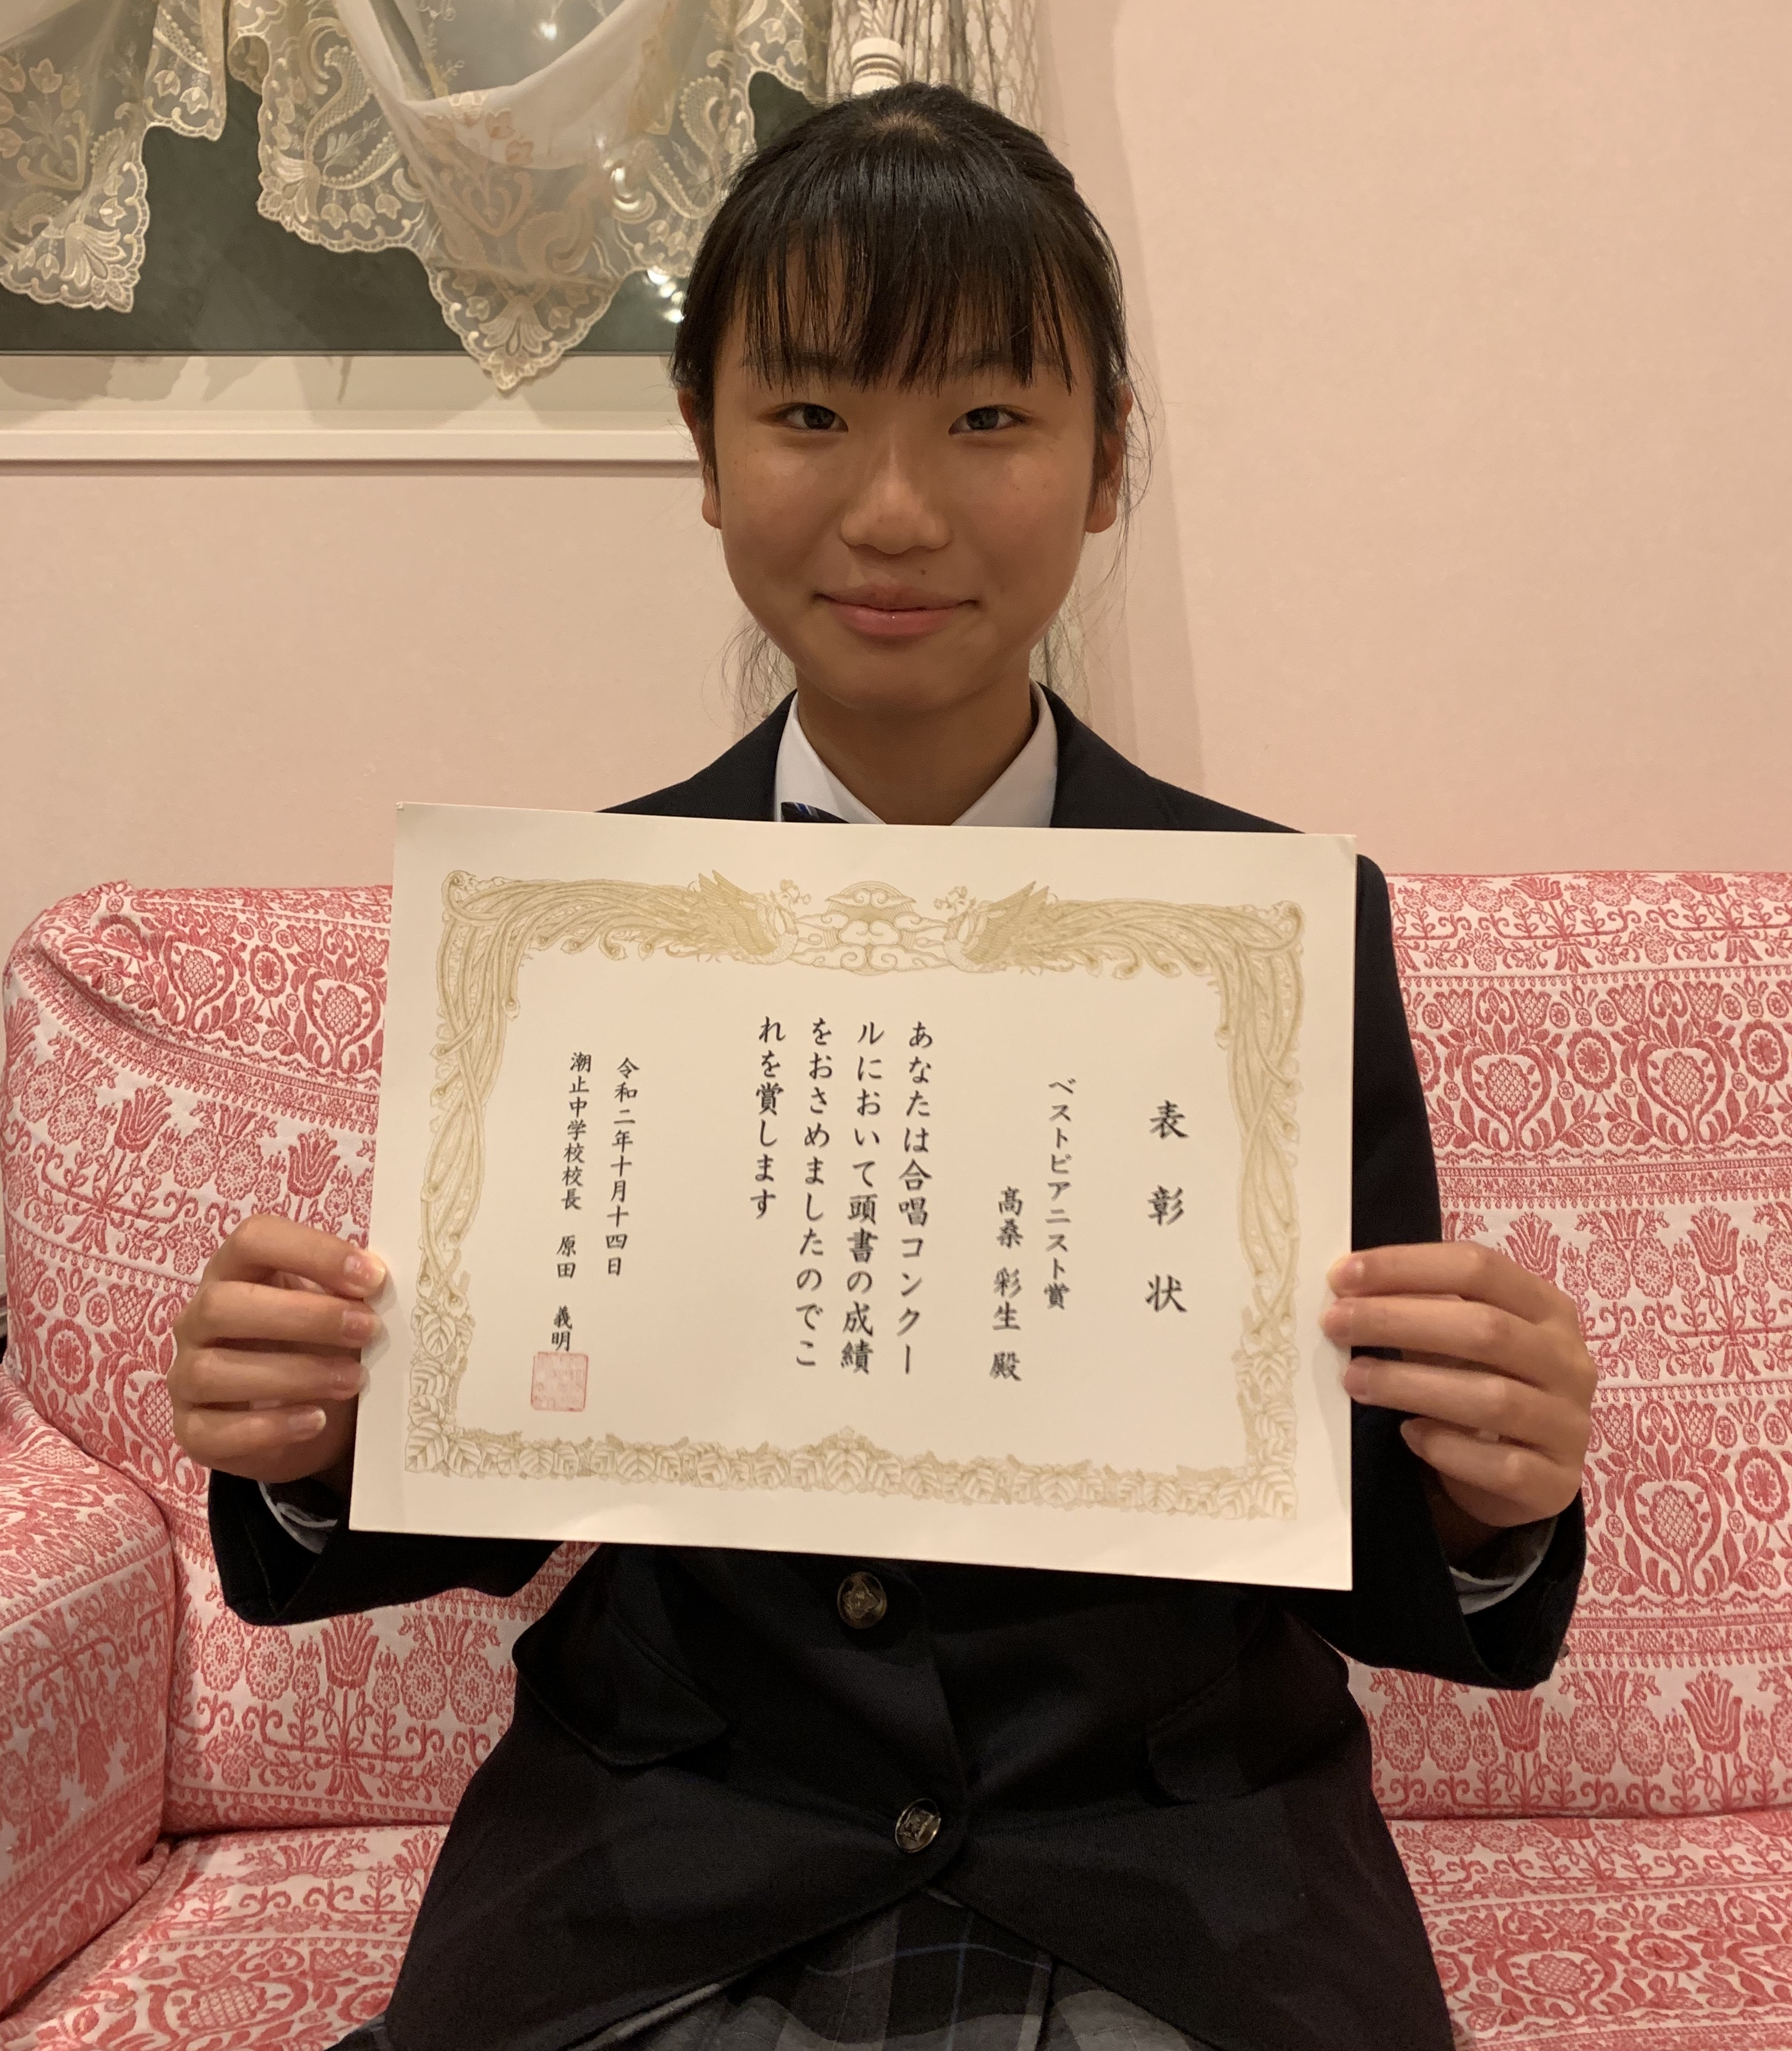 表彰状
ベストピアニスト賞
髙桑 彩生 殿
あなたは合唱コンクー
ルにおいて頭書の成績
をおさめましたのでこ
れを賞します
令和二年十月十四日
潮止中学校校長 原田 義明